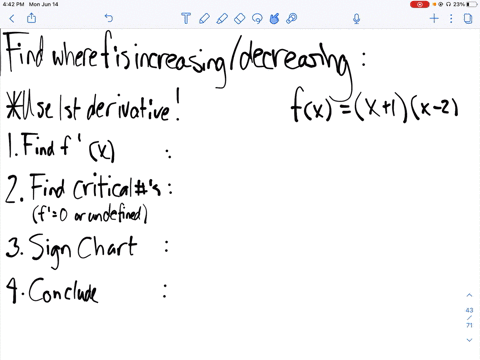 4:42 PM Mon Jun 14
23%
Find where f is increasing/decreasing :
*Use 1st derivative!
f(x) = (x+1)(x-2)
1. Find f'(x) :
2. Find critical #'s :
(f'=0 or undefined)
3. Sign Chart :
4. Conclude :
43
/
71